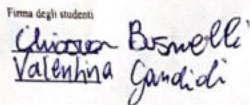 Firma degli studenti
Chiara Busnelli
Valentina Gandidi